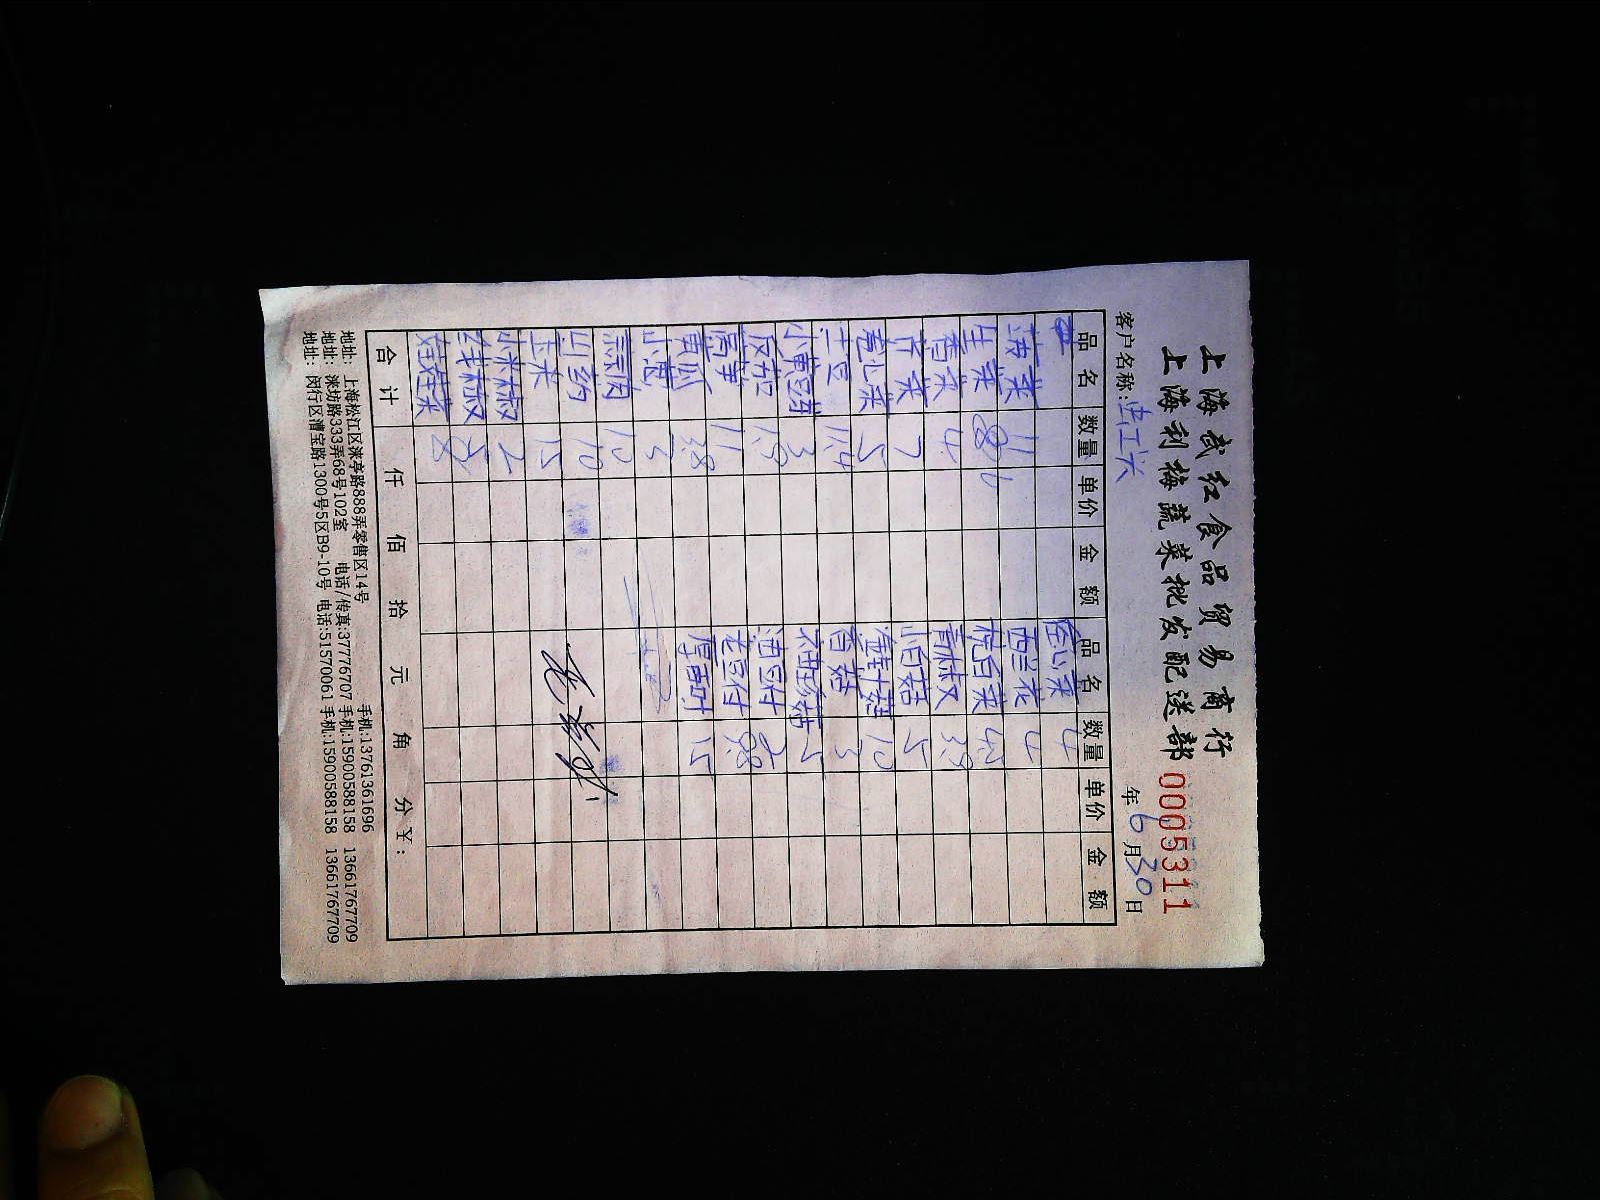 上海武红食品贸易商行
上海利梅蔬菜批发配送部 0005311
客户名称: 年 6 月 30 日
品名 数量 单价 金额 品名 数量 单价 金额
菠菜 11 空心菜 4
生菜 西兰花 4
香菜 4 杭白菜
芹菜 7 青椒
卷心菜 5 小白菇 5
土豆 11.4 金针菇 10
小黄豆芽 3 香菇 3
茄 1.9
莴笋 11 老豆付
黄瓜 3.8 厚百叶 15
小葱 3
蒜肉 10
山药 10
玉米 15
小米椒 2
线椒
娃娃菜 8
合计 仟 佰 拾 元 角 分 ¥:
地址: 上海松江区涞亭路888弄零售区14号 手机:13761361696 13661767709
地址: 涞坊路333弄68号102室 电话/传真:37776707 手机:15900588158
地址: 闵行区漕宝路1300号5区B9-10号 电话:51570061 手机:15900588158 13661767709